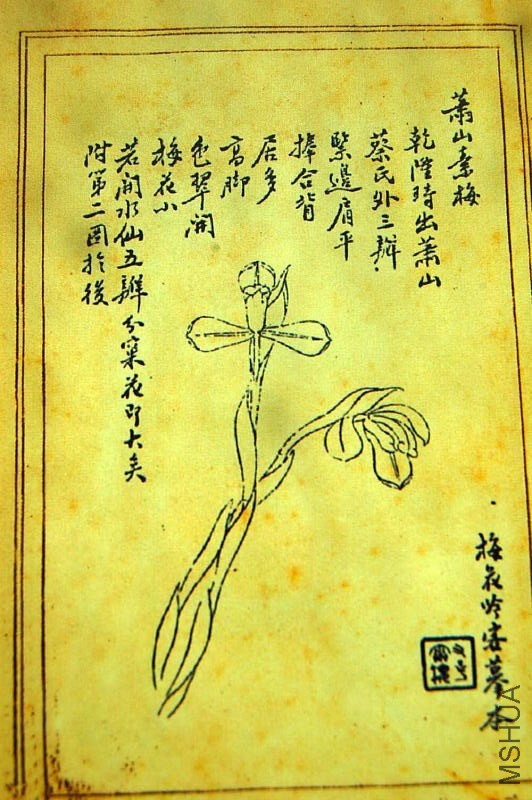 蕭山素梅
乾隆時出蕭山
蔡氏外三瓣
緊邊肩平
捧合背
居多
高脚
色翠開
梅花小
若開水仙五瓣分窠花即大矣
附第二圖於後
梅花吟客摹本
MSHUA